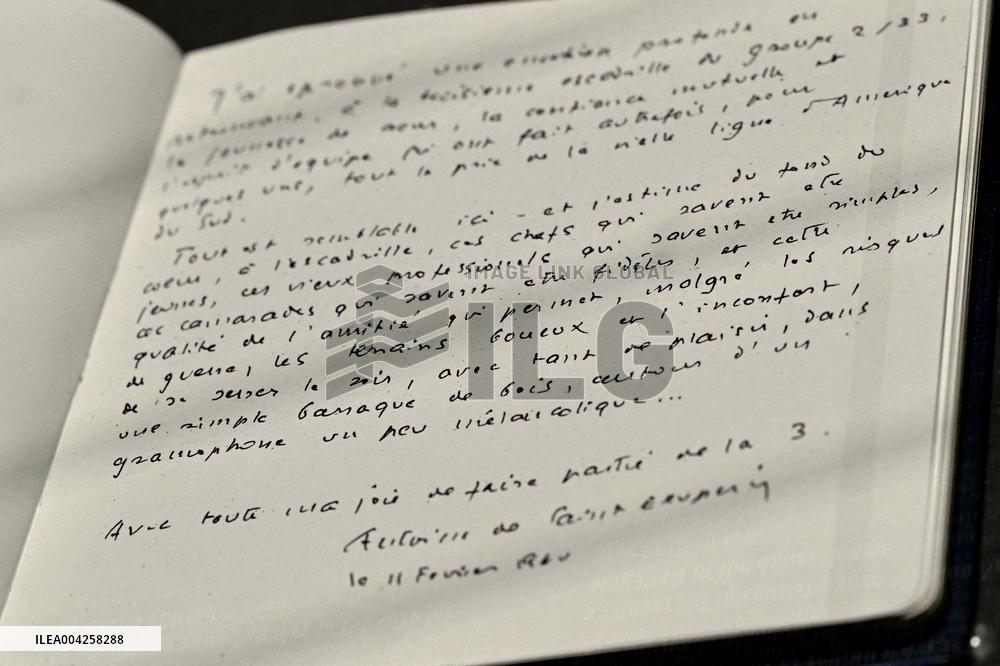 J'ai éprouvé une émotion profonde en
retrouvant, à la troisième escadrille du groupe 2/33,
la jeunesse de cœur, la confiance mutuelle et
l'esprit d'équipe qui ont fait autrefois, pour
quelques uns, tout le prix de la vieille ligne d'Amérique
du Sud.
Tout est semblable ici - et l'estime du fond du
cœur, à l'escadrille, ces chefs qui savent être
jeunes, ces vieux professionnels qui savent être simples,
ces camarades qui savent être fidèles, et cette
qualité de l'amitié qui permet, malgré les risques
de guerre, les terrains boueux et l'inconfort,
de se  le soir, avec tant de plaisir, dans
une simple baraque de bois, autour d'un
gramophone un peu mélancolique...
Avec toute ma joie de faire partie de la 3.
Antoine de Saint Exupéry
le 11 Février 1940
IMAGE LINK GLOBAL
ILG
ILEA004258288